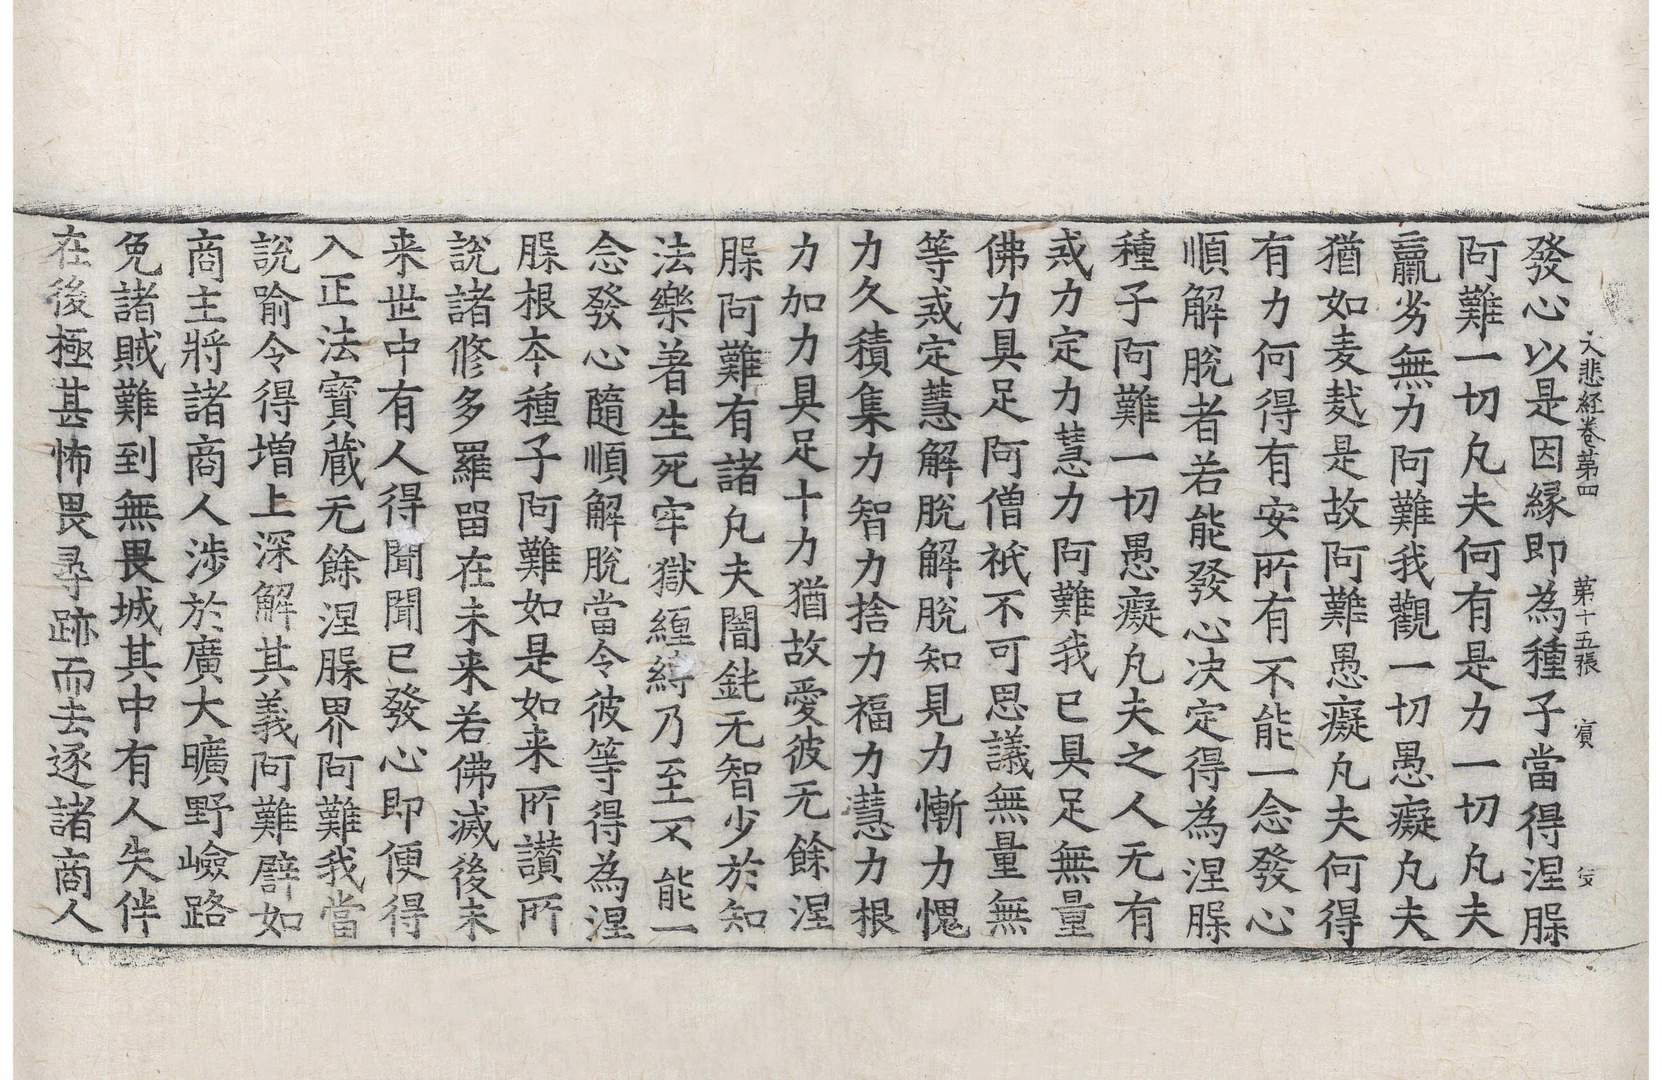 大悲経巻第四　第十五張　賔
發心以是因縁即為種子當得涅槃
阿難一切凡夫何有是力一切凡夫
羸劣無力阿難我觀一切愚癡凡夫
猶如麦䴬是故阿難愚癡凡夫何得
有力何得有安所有不能一念發心
順解脫者若能發心决定得為涅槃
種子阿難一切愚癡凡夫之人无有
戒力定力慧力阿難我已具足無量
佛力具足阿僧祇不可思議無量無
等戒定慧解脫解脫知見力慚力愧
力久積集力智力捨力福力慧力根
力加力具足十力猶故愛彼无餘涅
槃阿難有諸凡夫闇鈍无智少於知
法樂著生死牢獄纏縛乃至不能一
念發心隨順解脫當令彼等得為涅
槃根本種子阿難如是如来所讃所
說諸修多羅留在未来若佛滅後未
来世中有人得聞聞已發心即便得
入正法寶蔵无餘涅槃界阿難我當
說喻令得增上深解其義阿難譬如
商主將諸商人涉於廣大曠野嶮路
免諸賊難到無畏城其中有人失伴
在後極甚怖畏尋跡而去逐諸商人